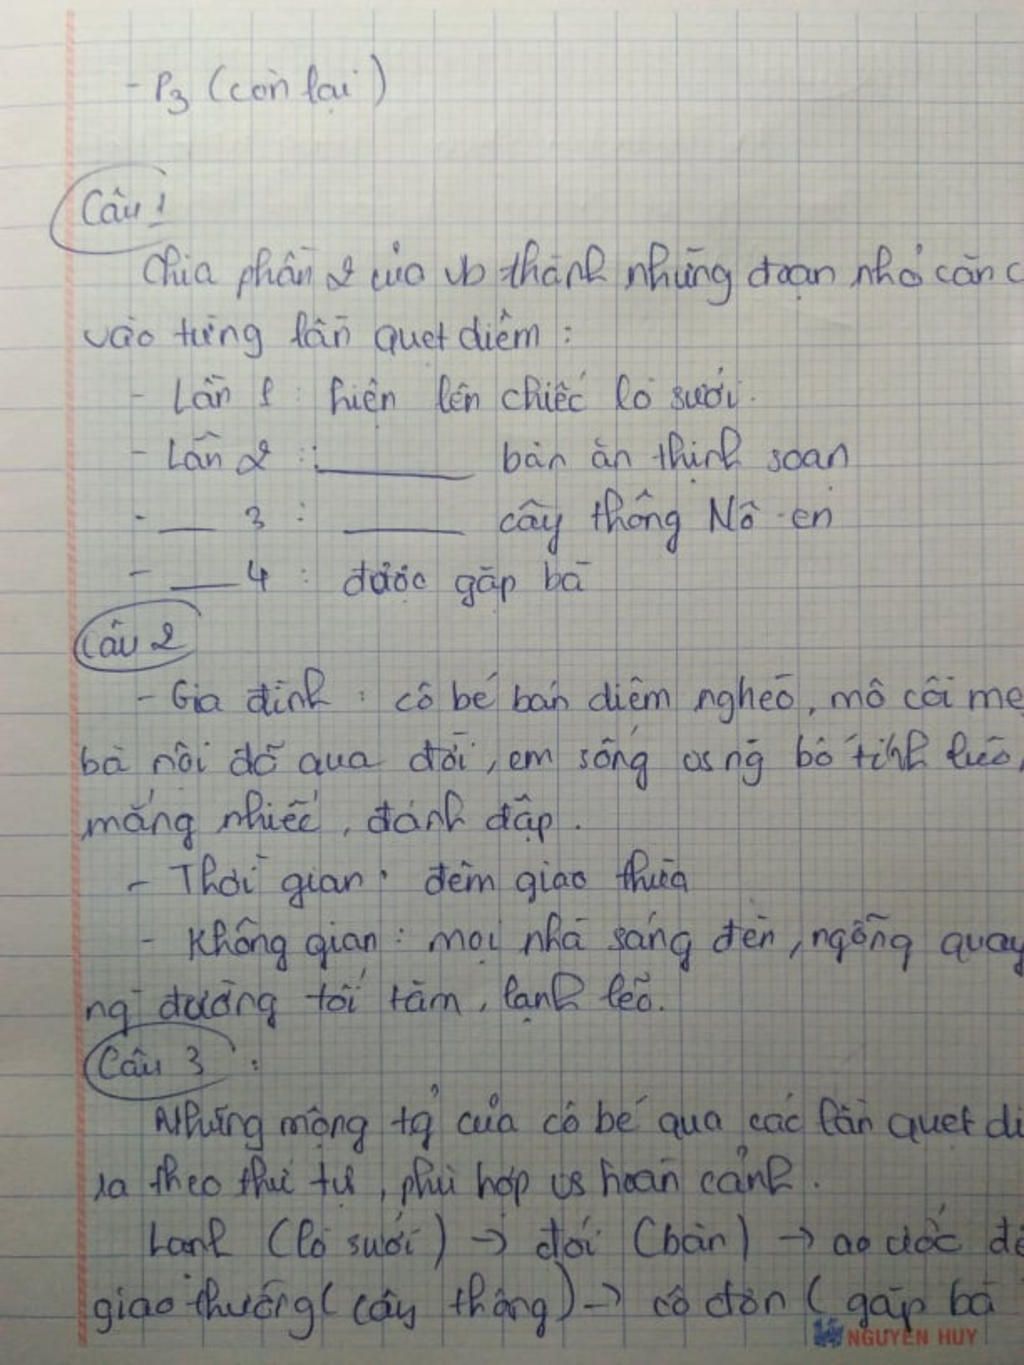 - P3 (còn lại)
Câu 1
Chia phần 2 của vb thành những đoạn nhỏ căn c
vào từng lần quẹt diêm :
- Lần 1 : hiện lên chiếc lò sưởi.
- Lần 2 : ______ bàn ăn thịnh soạn
- ___ 3 : ______ cây thông Nô-en
- ___ 4 : được gặp bà
Câu 2
- Gia đình : cô bé bán diêm nghèo, mồ côi mẹ
bà nội đã qua đời, em sống vs ng bố
mắng nhiếc, đánh đập.
- Thời gian : đêm giao thừa
- Không gian : mọi nhà sáng đèn, ngỗng quay
ng đường tối tăm, lạnh lẽo.
Câu 3 :
Những mộng tg của cô bé qua các lần quẹt di
ra theo thứ tự, phù hợp vs hoàn cảnh.
Lạnh (lò sưởi) → đói (bàn) → ao ước
giao thừa (cây thông) → cô đơn (gặp bà
NGUYEN HUY